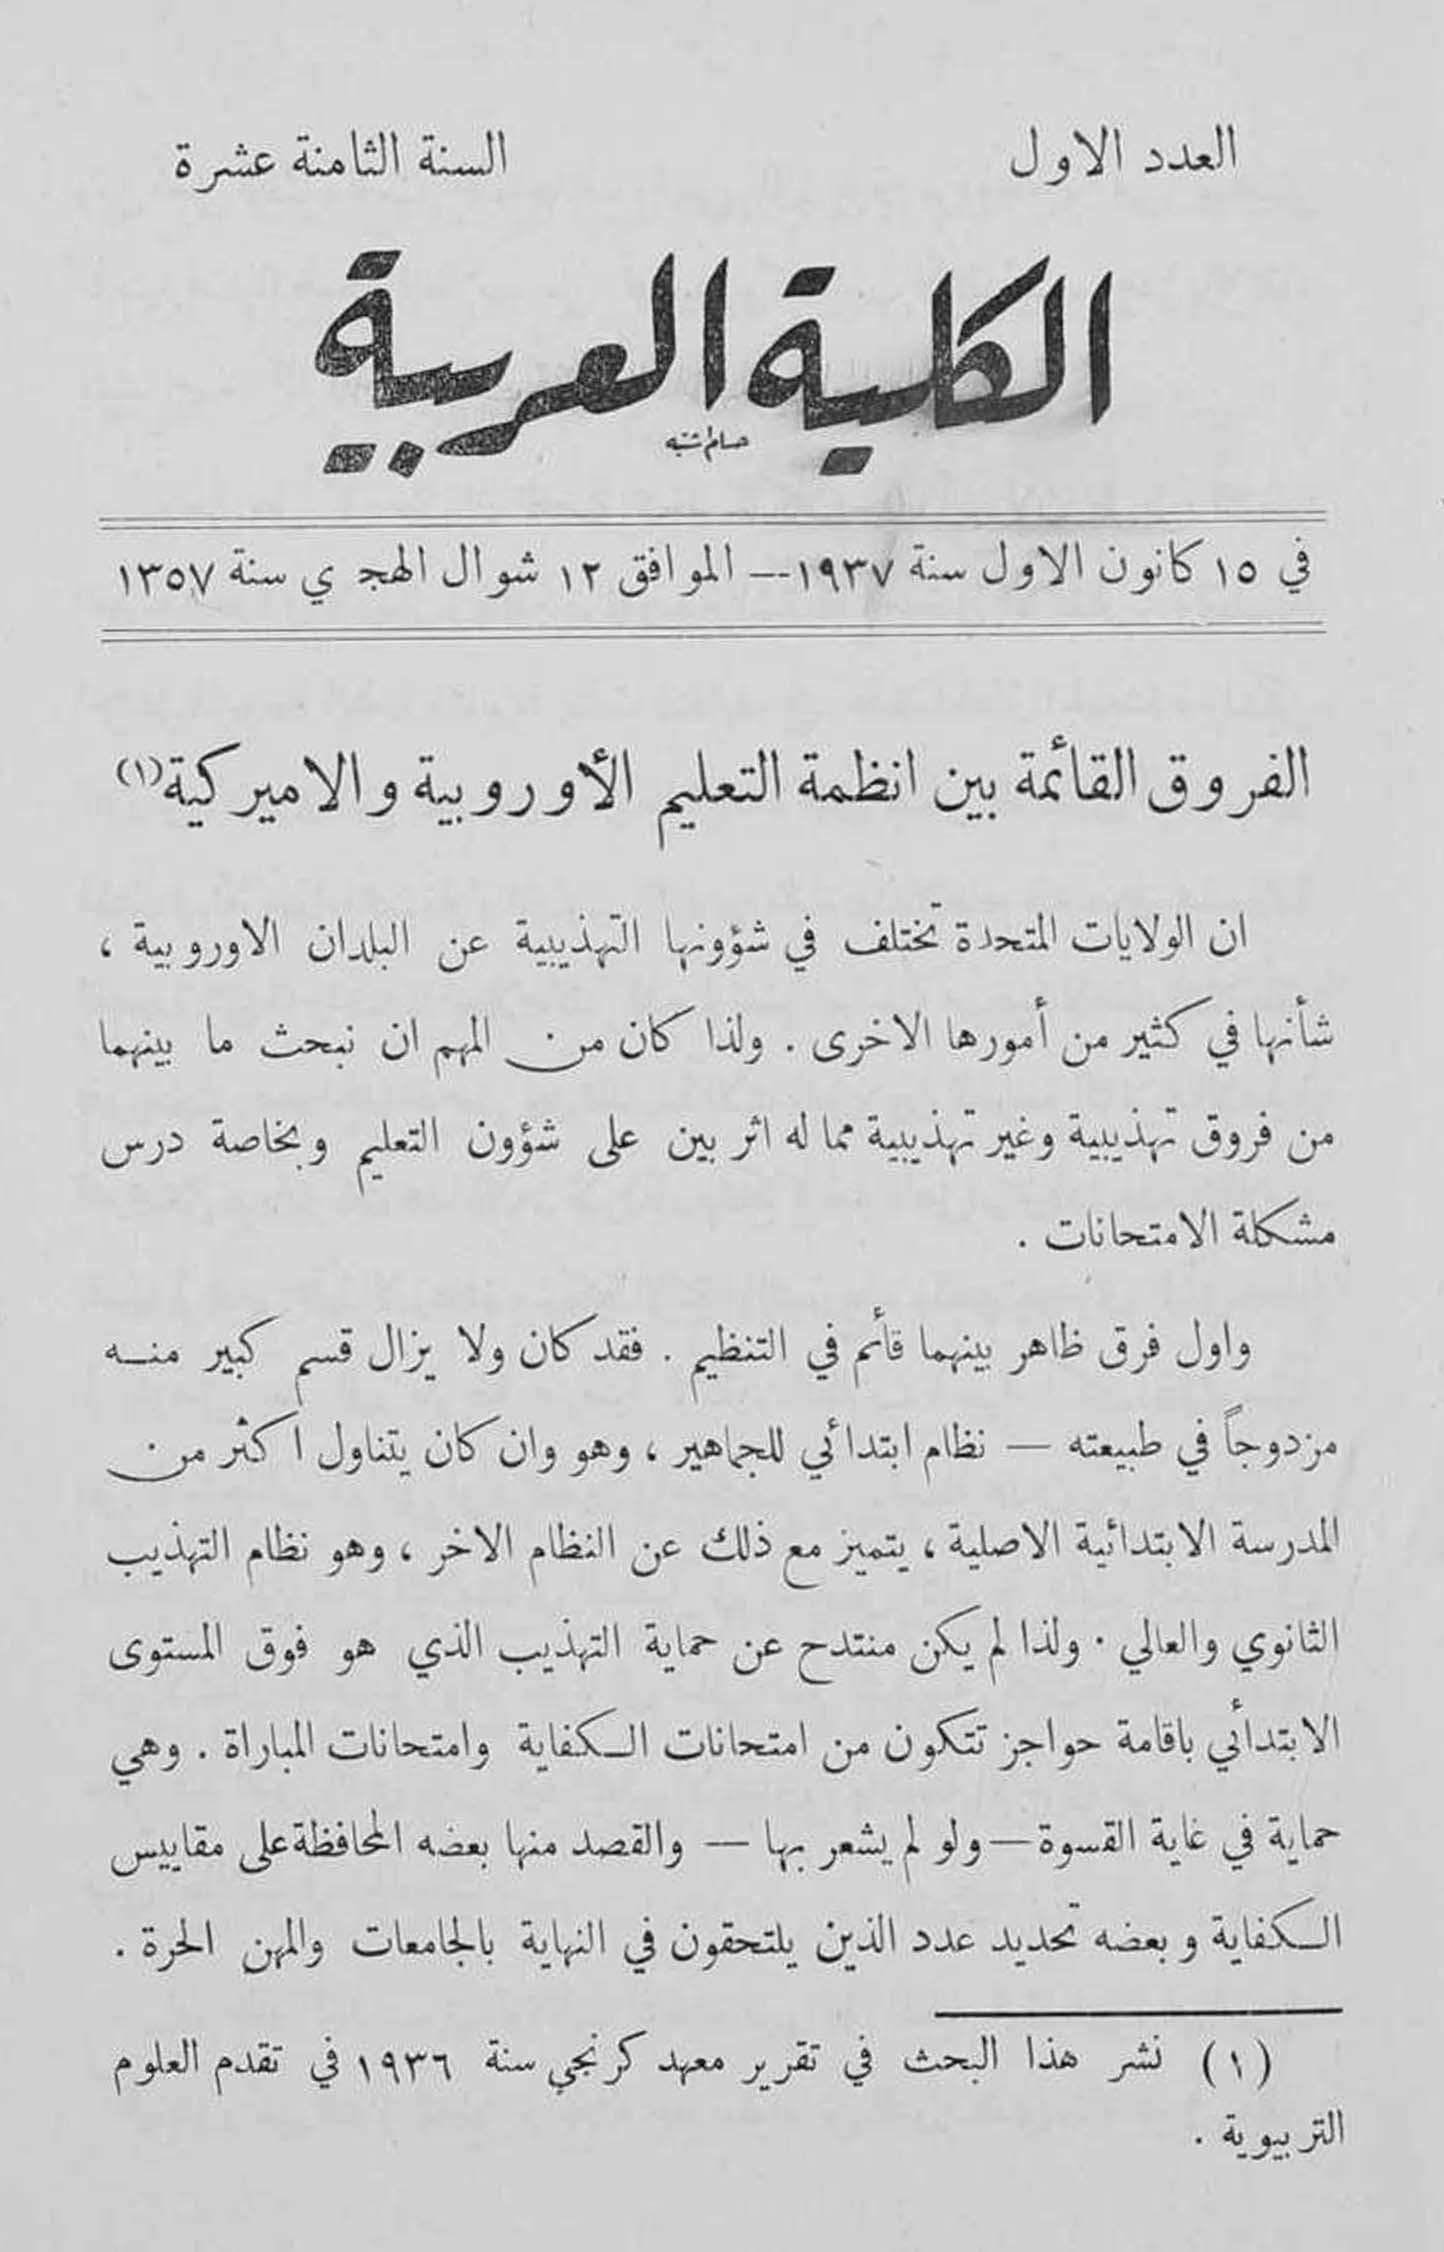 العدد الاول
السنة الثامنة عشرة
الكلية العربية
في ١٥ كانون الاول سنة ١٩٣٧ — الموافق ١٢ شوال الهجـ ي سنة ١٣٥٧
الفروق القائمة بين انظمة التعليم الأوروبية والاميركية (١)
ان الولايات المتحدة تختلف في شؤونها التهذيبية عن البلدان الاوروبية ،
شأنها في كثير من أمورها الاخرى . ولذا كان من المهم ان نبحث ما بينهما
من فروق تهذيبية وغير تهذيبية مما له اثر بين على شؤون التعليم وبخاصة درس
مشكلة الامتحانات .
واول فرق ظاهر بينهما قائم في التنظيم . فقد كان ولا يزال قسم كبير منه
مزدوجاً في طبيعته — نظام ابتدائي للجماهير ، وهو وان كان يتناول اكثر من
المدرسة الابتدائية الاصلية ، يتميز مع ذلك عن النظام الاخر ، وهو نظام التهذيب
الثانوي والعالي . ولذا لم يكن منتدح عن حماية التهذيب الذي هو فوق المستوى
الابتدائي باقامة حواجز تتكون من امتحانات الكفاية وامتحانات المباراة . وهي
حماية في غاية القسوة — ولو لم يشعر بها — والقصد منها بعضه المحافظة على مقاييس
الكفاية وبعضه تحديد عدد الذين يلتحقون في النهاية بالجامعات والمهن الحرة .
(١) نشر هذا البحث في تقرير معهد كرنجي سنة ١٩٣٦ في تقدم العلوم
التربيوية .